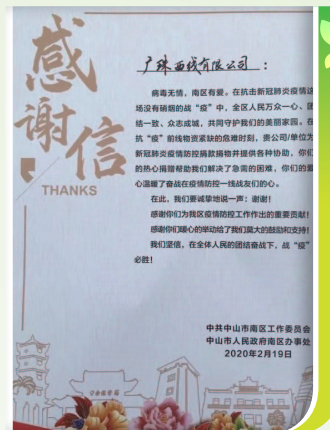 感谢信
THANKS
广珠西线有限公司：
病毒无情，南区有爱。在抗击新冠肺炎疫情这
场没有硝烟的战“疫”中，全区人民万众一心、团
结一致、众志成城，共同守护我们的美丽家园。在
抗“疫”前线物资紧缺的危难时刻，贵公司/单位为
新冠肺炎疫情防控捐款捐物并提供各种协助，你们
的热心捐赠帮助我们解决了急需的困难，你们的爱
心温暖了奋战在疫情防控一线战友们的心。
在此，我们要诚挚地说一声：谢谢！
感谢你们为我区疫情防控工作作出的重要贡献！
感谢你们暖心的举动给了我们莫大的鼓励和支持！
我们坚信，在全体人民的团结奋战下，战“疫”
必胜！
中共中山市南区工作委员会
中山市人民政府南区办事处
2020年2月19日